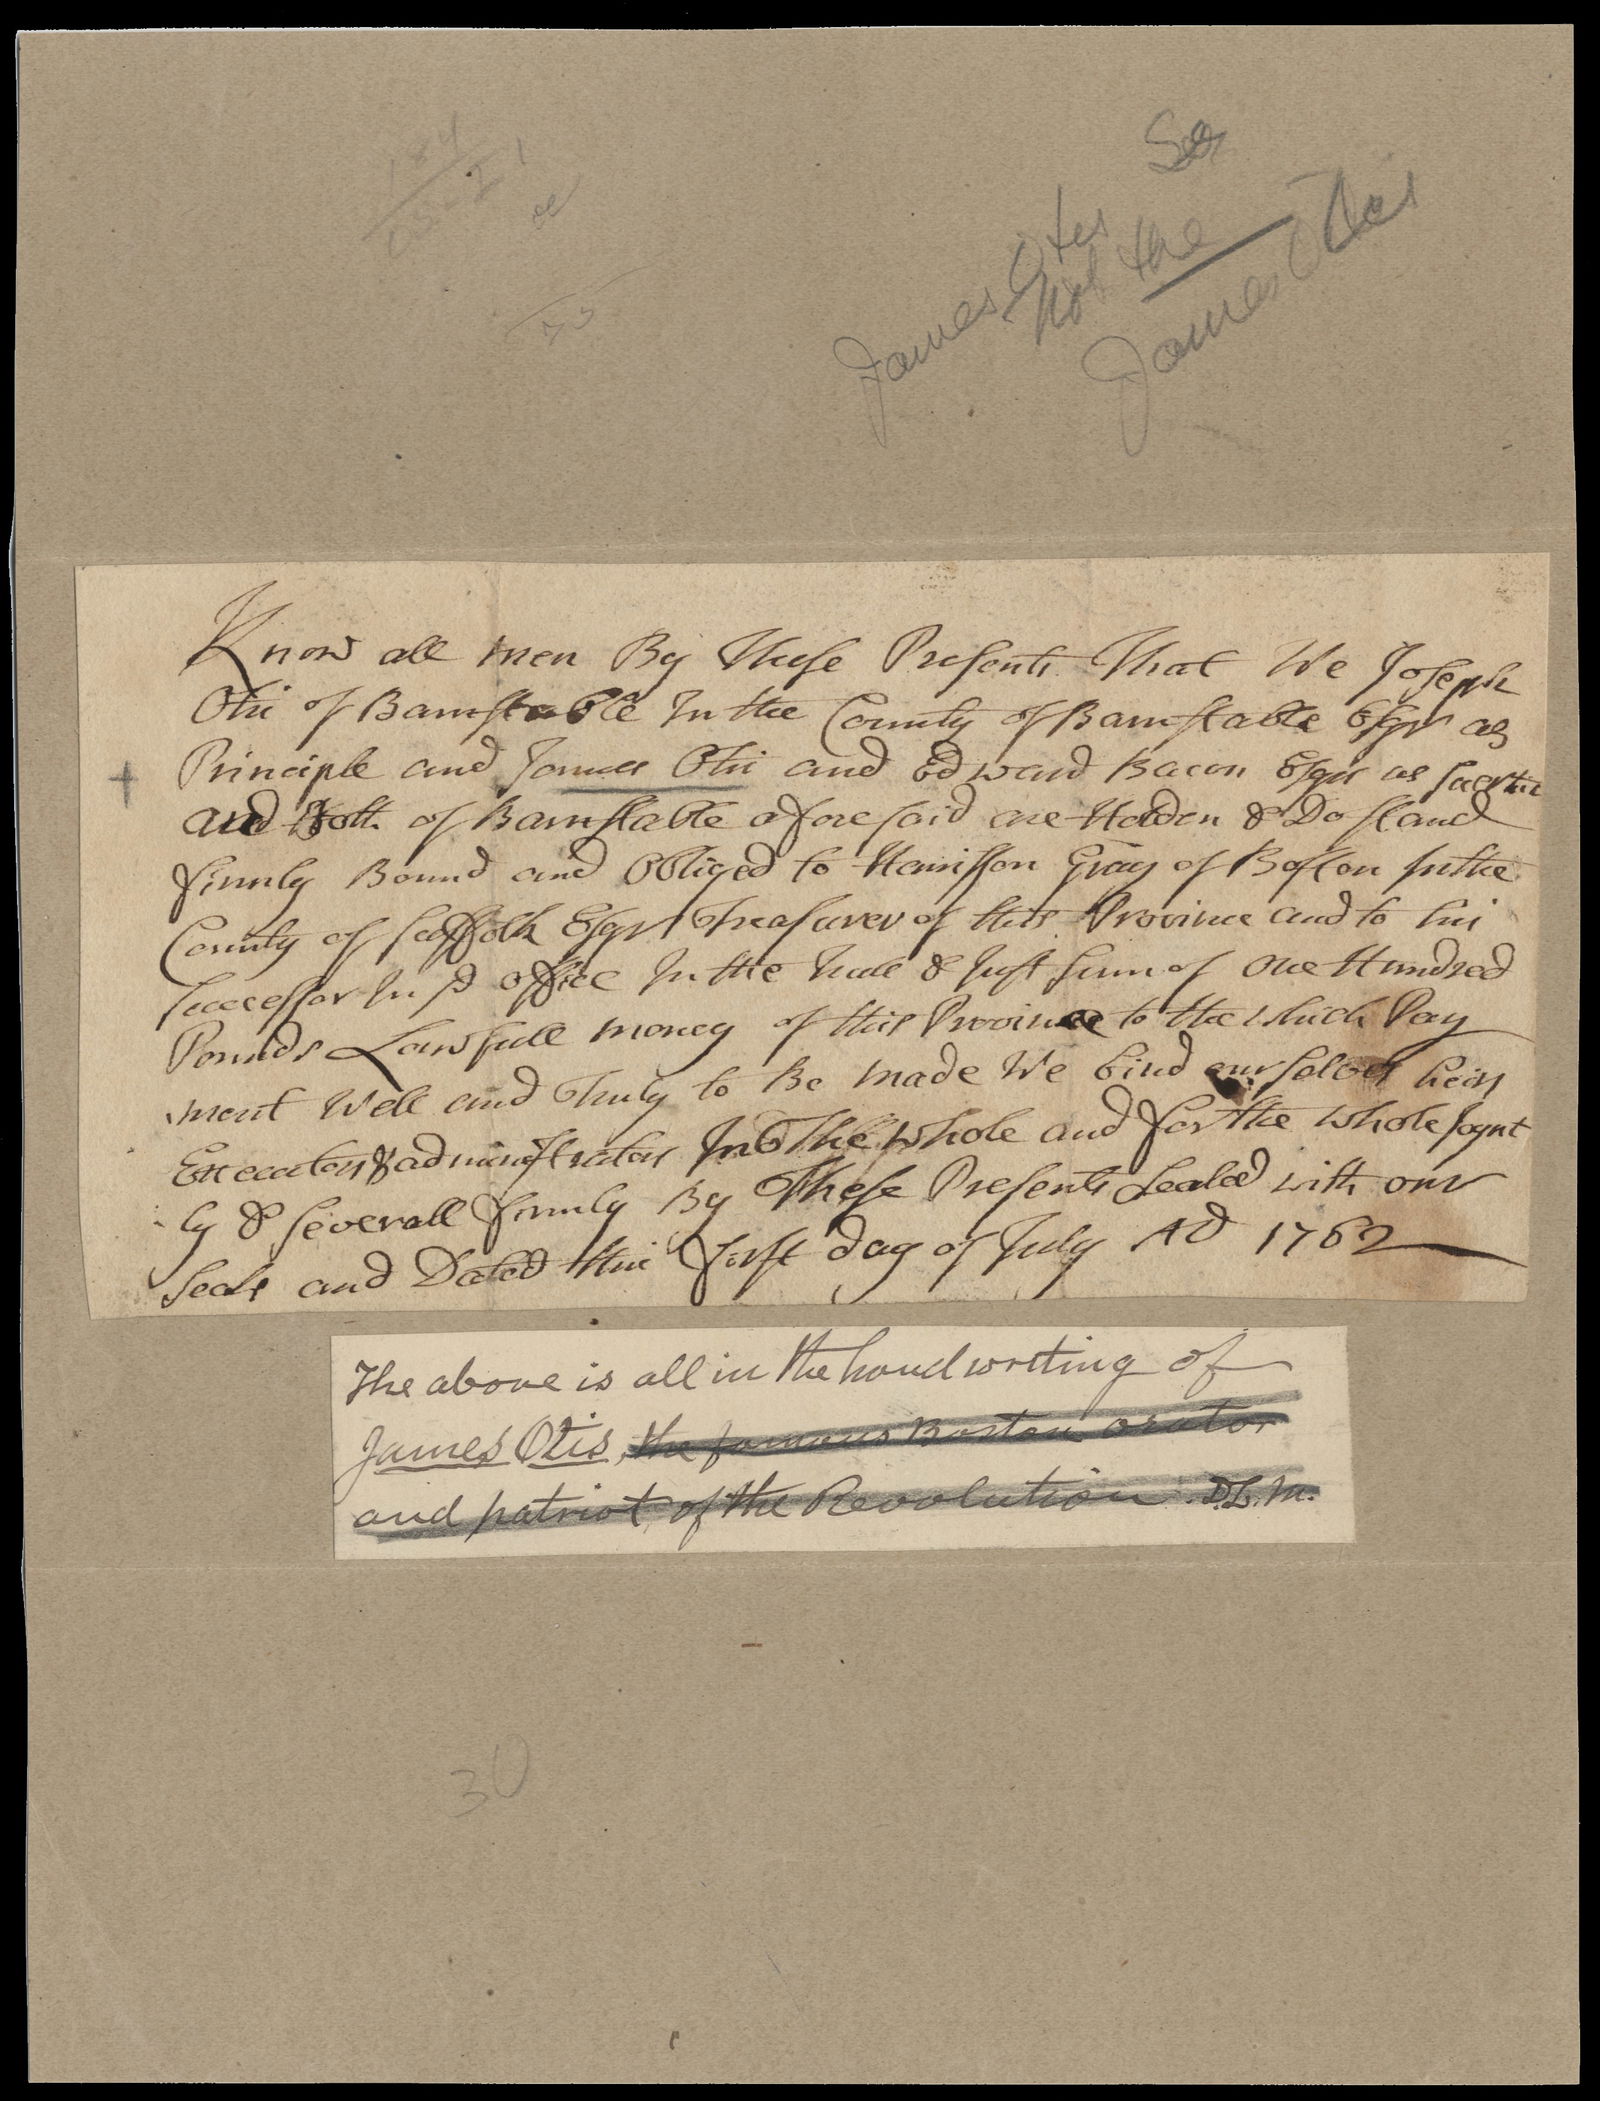 See
James Otis
Not the
James Otis
Know all men By These Presents That We Joseph
Otis of Barnstable In the County of Barnstable Esqr as
Principle and James Otis and Edward Bacon Esqrs as suerties
and Both of Barnstable aforesaid are Holden & Do stand
firmly Bound and Obliged to Harrisson Gray of Boston In the
County of Suffolk Esqr Treasurer of this Province and to his
successor In sd office In the True & Just sum of One Hundred
Pounds Lawfull money of this Province to the which Pay
ment Well and Truly to Be made We bind ourselves heirs
Executors & administrators In The whole and for the whole Joynt
ly & severall firmly By These Presents Sealed with our
seals and Dated this first day of July AD 1762
The above is all in the handwriting of
James Otis, the famous Boston orator
and patriot of the Revolution. D.L.M.
30